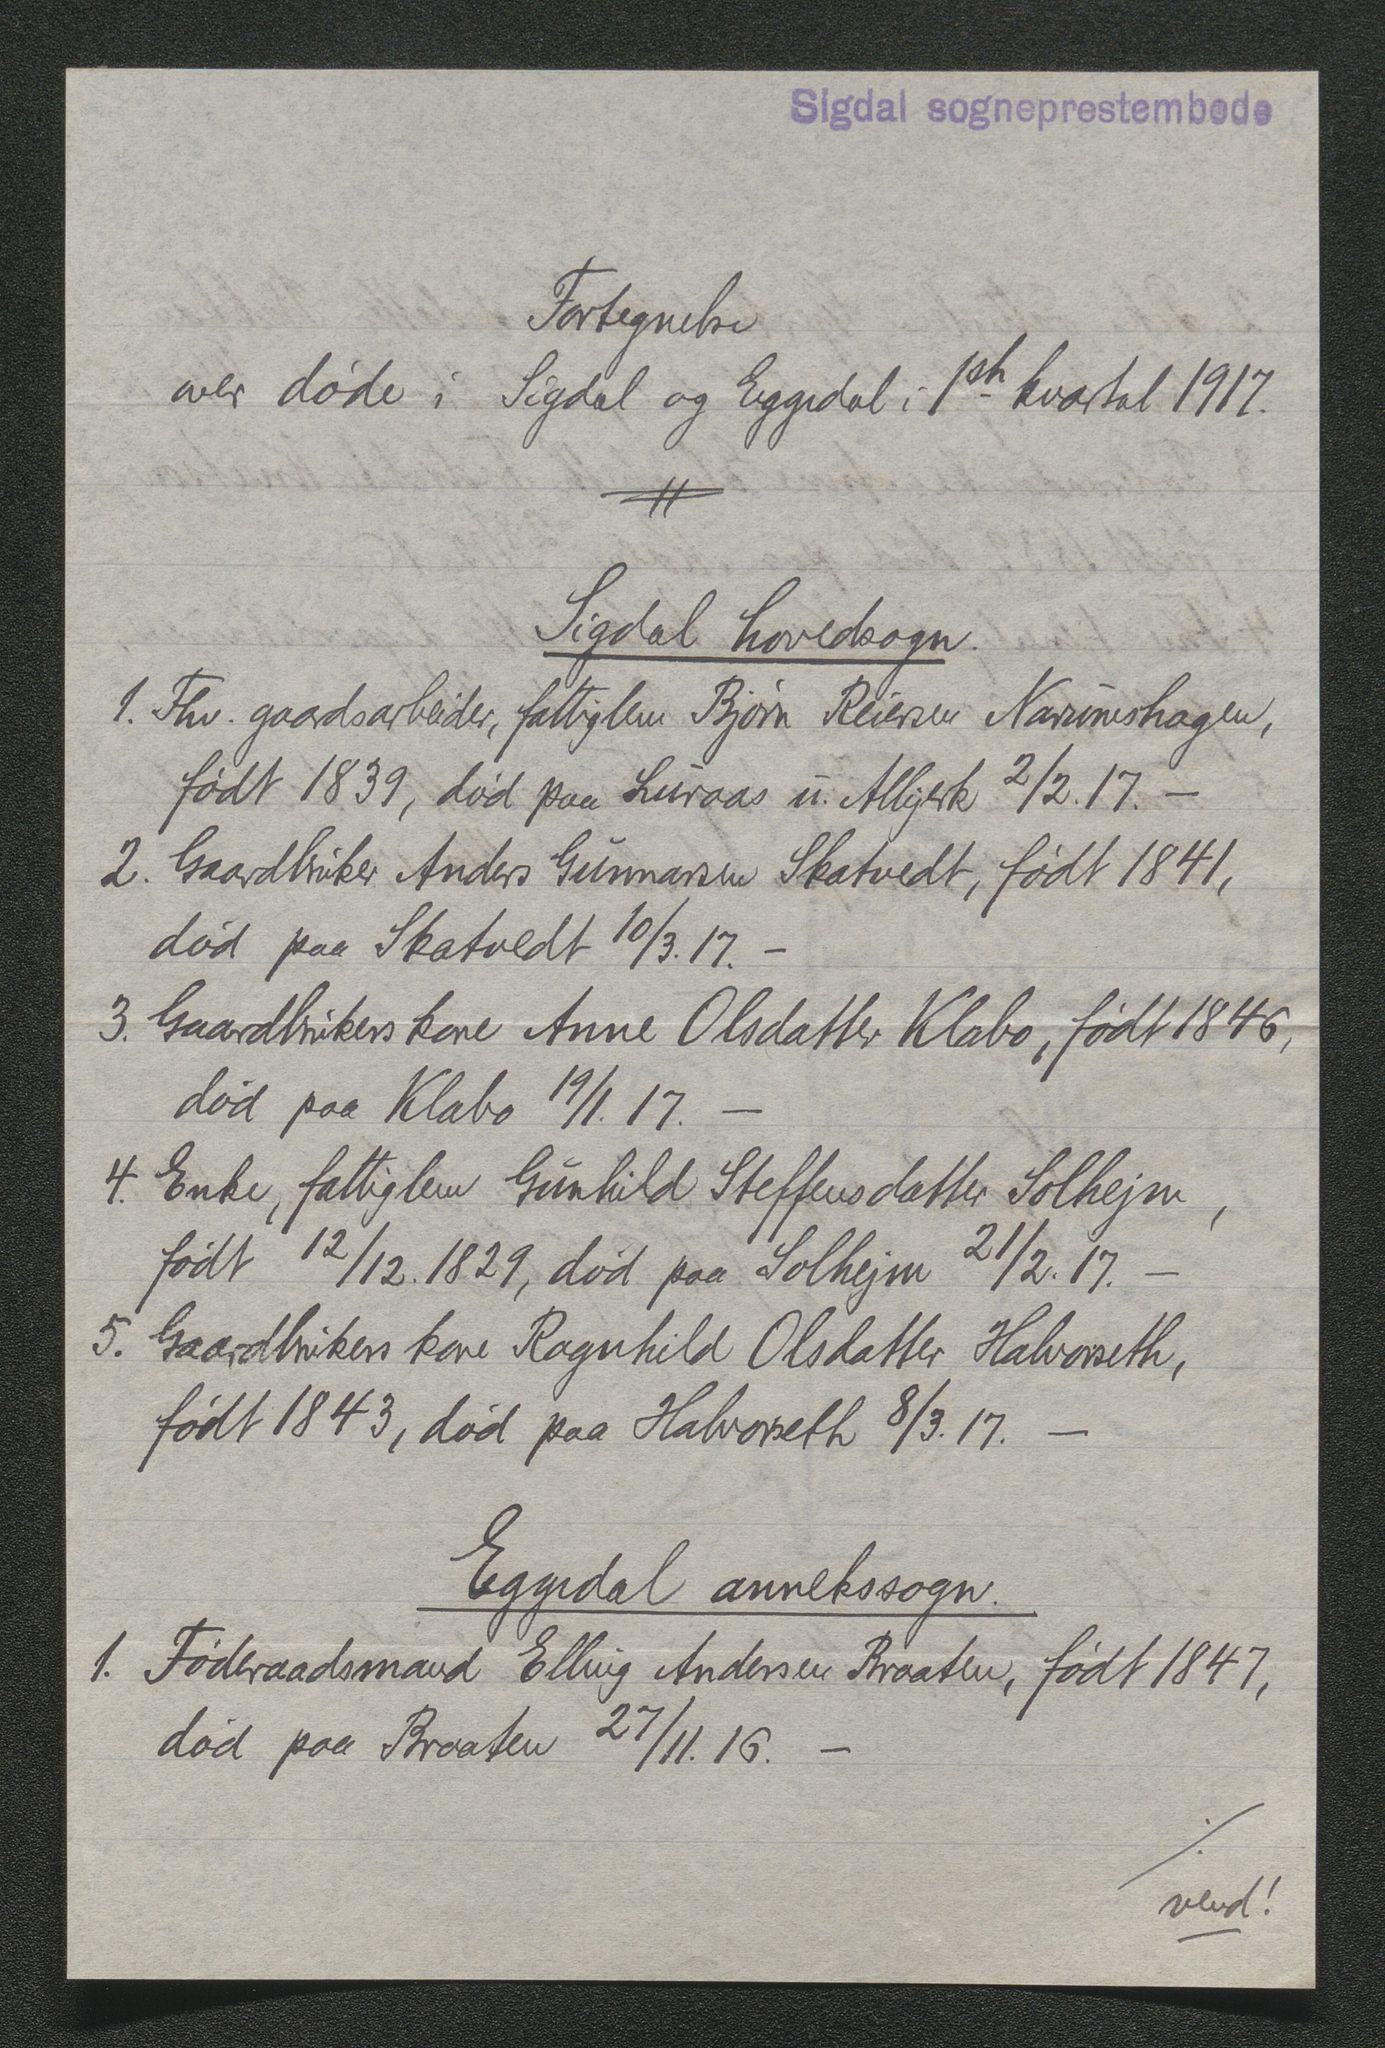 Sigdal sogneprestembede
Fortegnelse
over døde i Sigdal og Eggedal i 1ste kvartal 1917.
Sigdal hovedsogn.
1. Fhv. gaardsarbeider, fattiglem Bjørn Reiersen Narumshagen,
født 1839, død paa Luraas u. Albjerk 2/2.17. —
2. Gaardbruker Anders Gunnarsen Skatvedt, født 1841,
død paa Skatvedt 10/3.17. —
3. Gaardbrukers kone Anne Olsdatter Klabo, født 1846,
død paa Klabo 19/1.17. —
4. Enke, fattiglem Gunhild Steffensdatter Solhejm,
født 12/12.1829, død paa Solhejm 21/2.17. —
5. Gaardbrukers kone Ragnhild Olsdatter Halvorseth,
født 1843, død paa Halvorseth 8/3.17. —
Eggedal annekssogn.
1. Føderaadsmand Elling Andersen Braaten, født 1847,
død paa Braaten 27/11.16. —
./.
vend!